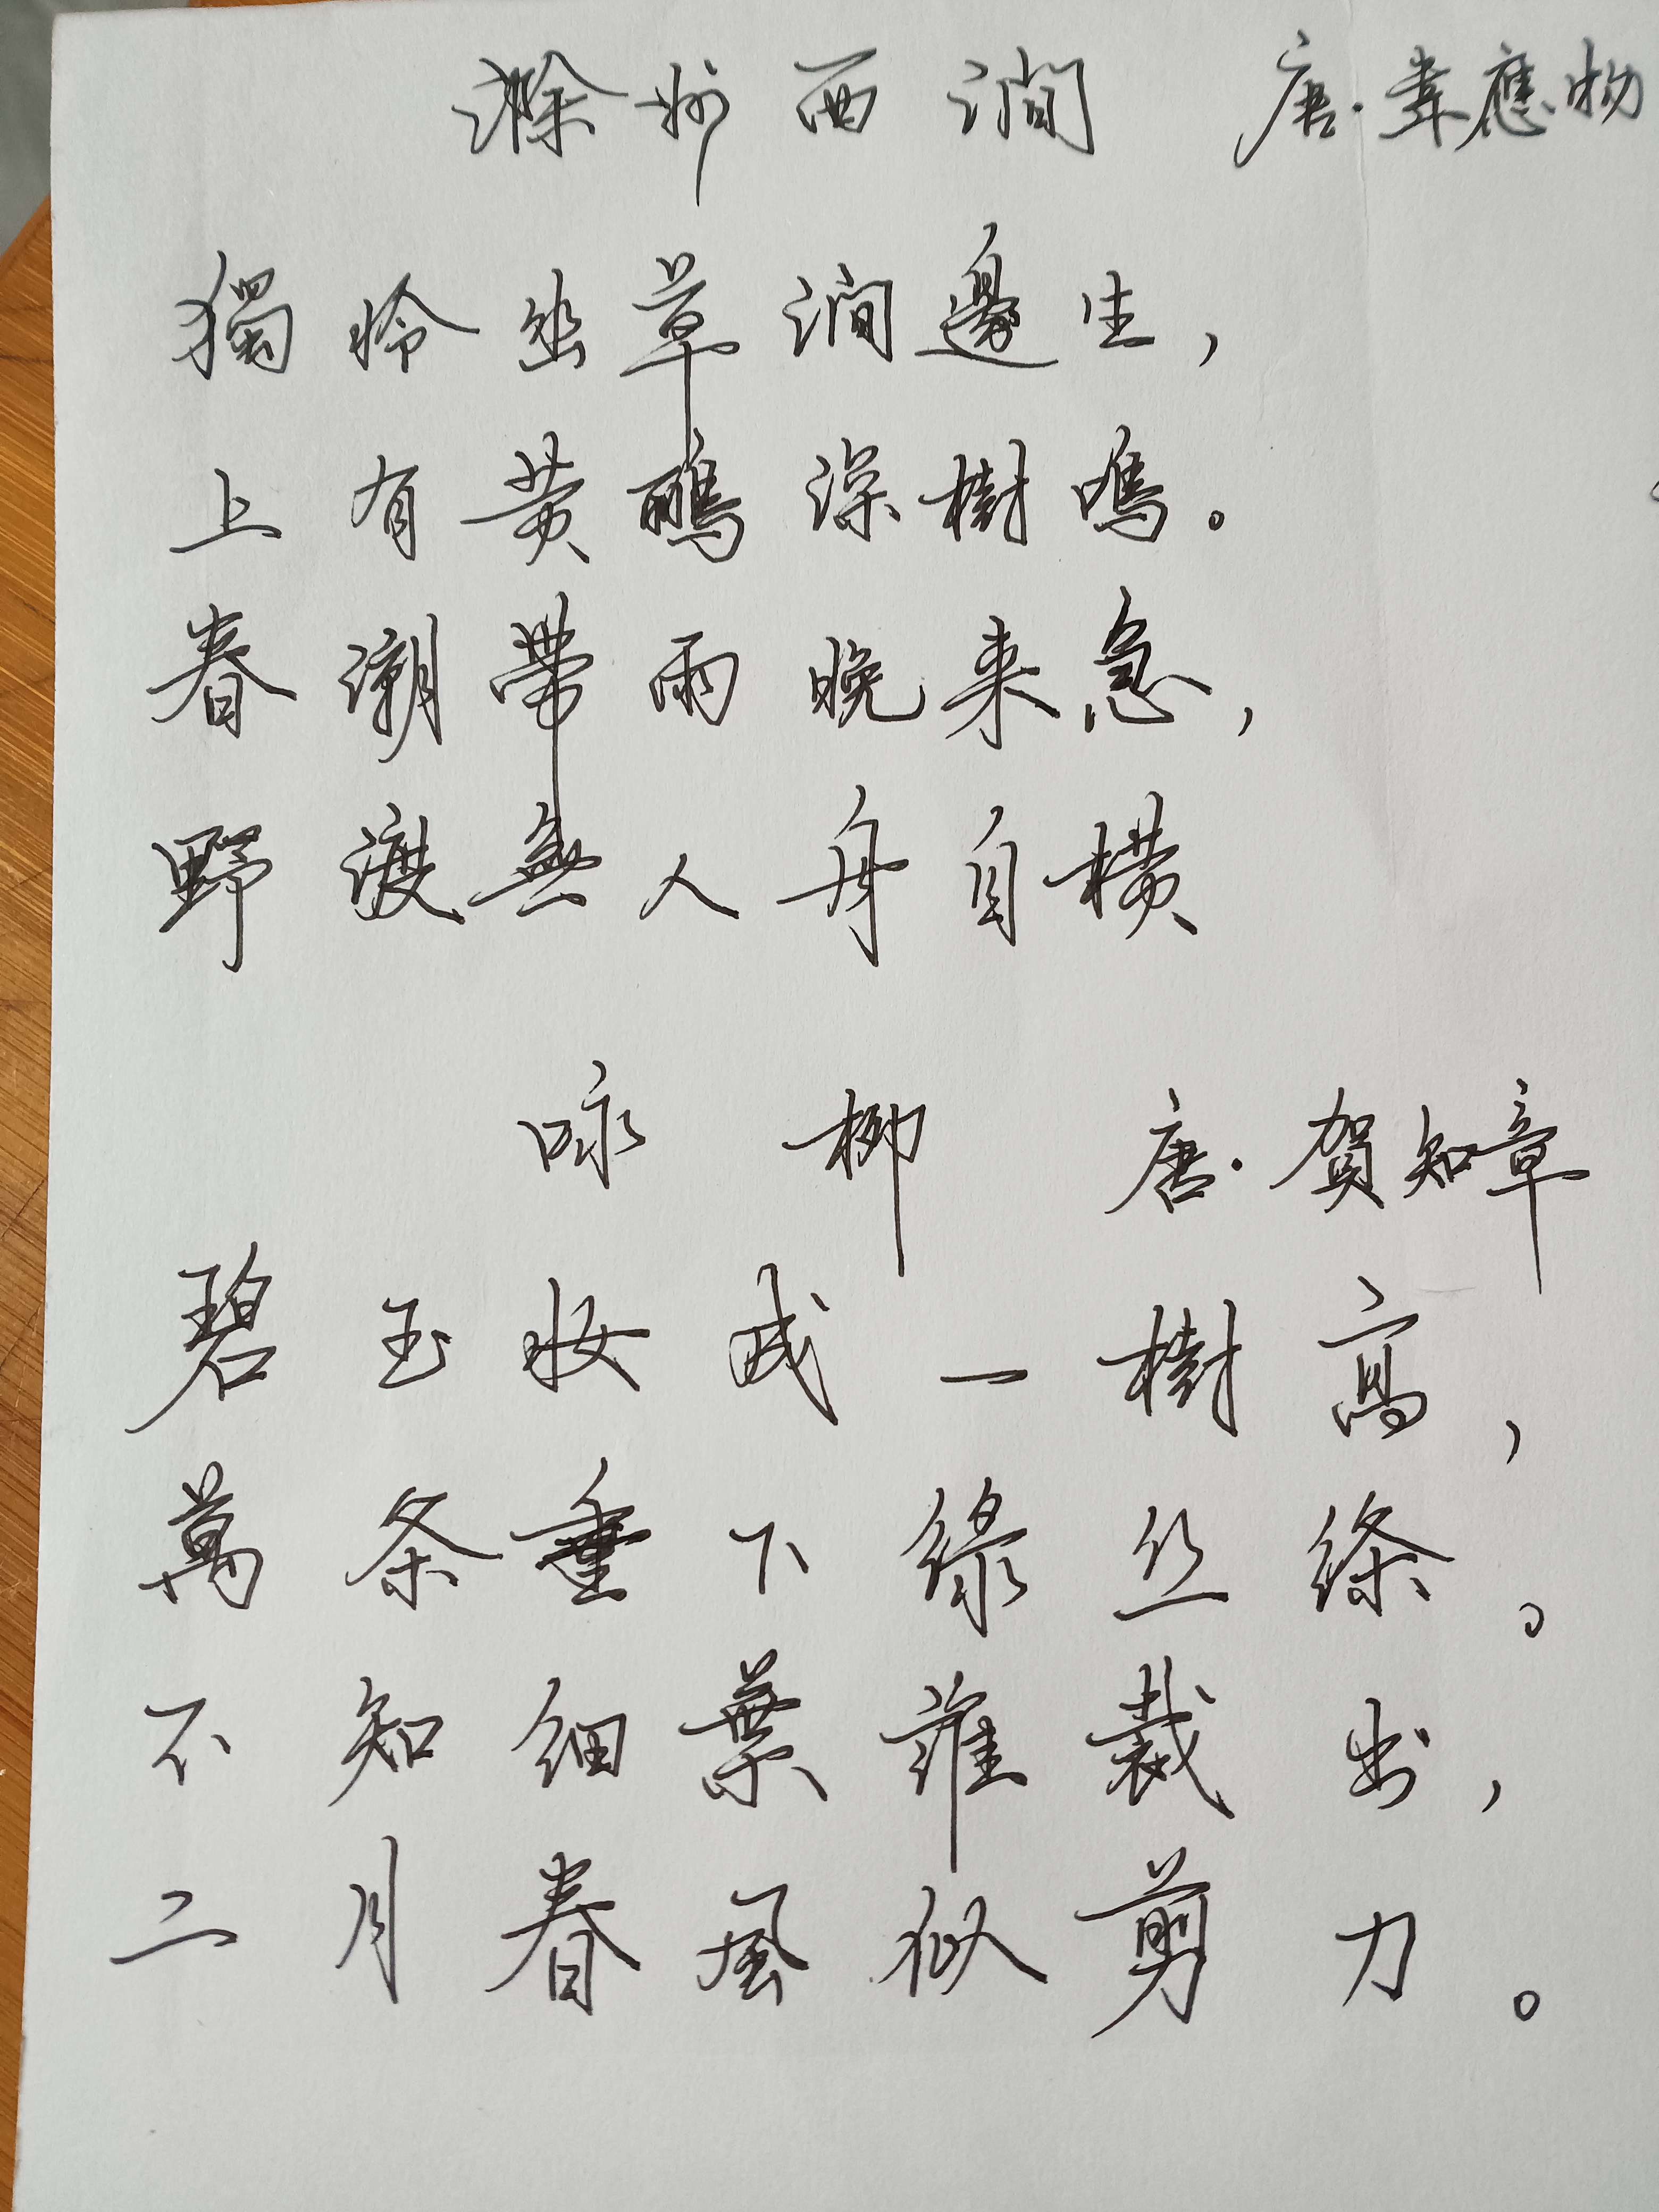 滁州西澗 唐·韋應物
獨怜幽草澗邊生，
上有黄鸝深樹鳴。
春潮帶雨晚来急，
野渡無人舟自横
咏柳 唐·賀知章
碧玉妝成一樹高，
萬条垂下緑丝絛。
不知細葉誰裁出，
二月春風似剪刀。